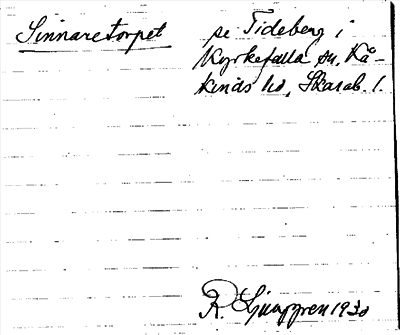 Sinnaretorpet
se Tideberg i
Kyrkefalla sn, Kå-
kinds hd, Skarab. l.
R. Ljunggren 1930